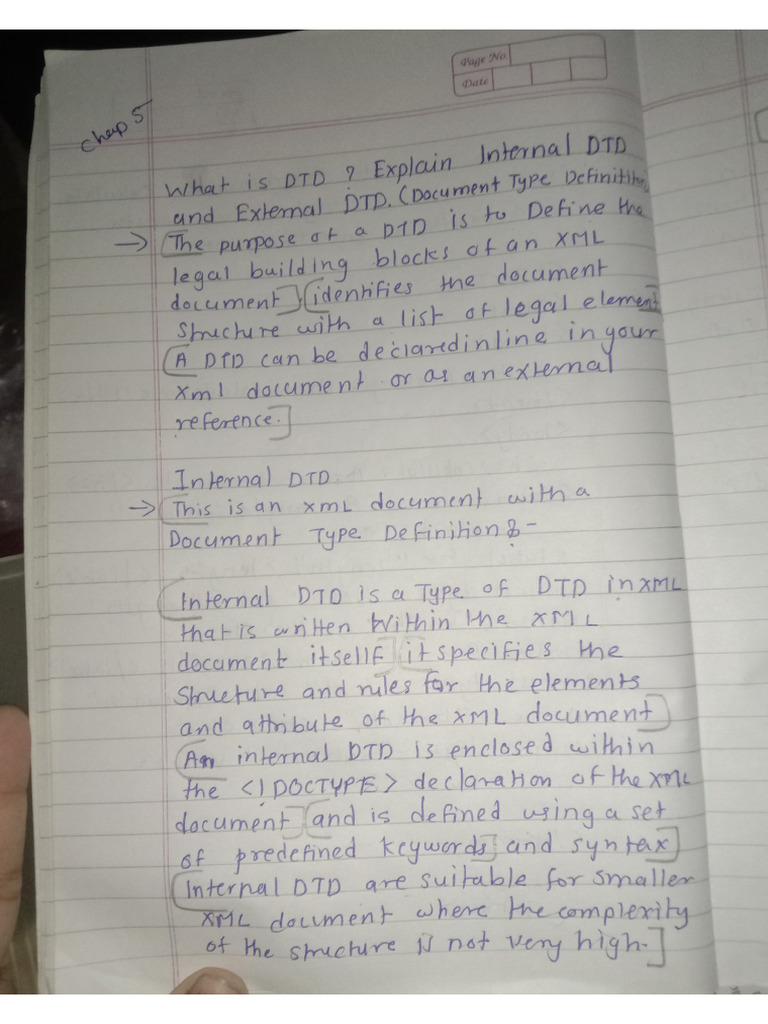 Page No.
Date
Chap 5
What is DTD ? Explain Internal DTD
and External DTD. (Document Type Definitition
→ The purpose of a DTD is to Define the
legal building blocks of an XML
document identifies the document
structure with a list of legal element
A DTD can be declared inline in your
xml document or as an external
reference.
Internal DTD
→ This is an xmL document with a
Document Type Definition :-
Internal DTD is a Type of DTD in XML
that is written Within the XML
document itsellf it specifies the
structure and rules for the elements
and attribute of the XML document
An internal DTD is enclosed within
the <!DOCTYPE> declaration of the XML
document and is defined using a set
of predefined keywords and syntax
Internal DTD are suitable for smaller
XML document where the complexity
of the structure is not very high.